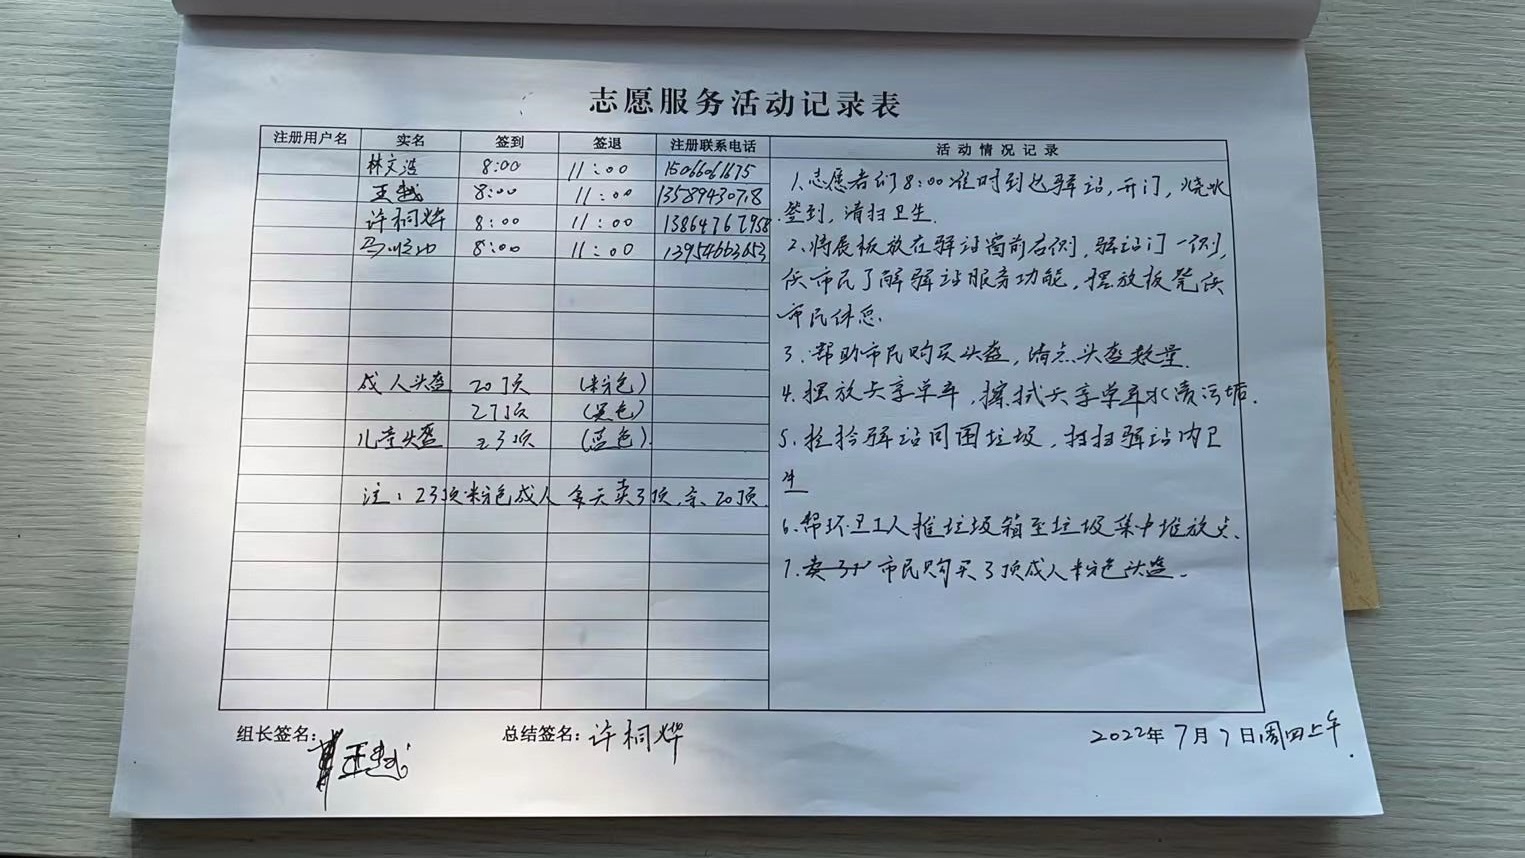 志愿服务活动记录表
注册用户名 实名 签到 签退 注册联系电话 活动情况记录
林文浩 8:00 11:00
王越 8:00 11:00 13589430718
许桐烨 8:00 11:00 13864767958
8:00 11:00 13954663653
成人头盔 20顶 (粉色)
27顶 (黑色)
儿童头盔 23顶 (蓝色)
注:23顶粉色成人 今天卖3顶.余.20顶.
1.志愿者们8:00准时到达驿站,开门,烧水
签到,清扫卫生.
2.将展板放在驿站窗前右侧,驿站门一侧,
供市民了解驿站服务功能,摆放板凳供
市民休息.
3.帮助市民购买头盔,清点头盔数量.
4.摆放共享单车,擦拭共享单车水渍污垢.
5.捡拾驿站周围垃圾,打扫驿站内卫
生
6.帮环卫工人推垃圾箱至垃圾集中堆放点.
7.卖3 市民购买3顶成人粉色头盔.
组长签名: 王越
总结签名: 许桐烨
2022年7月7日周四上午.